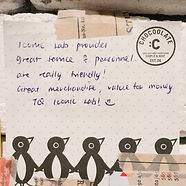 Iconic Lab provides
great service & personnel.
are really friendly!
Great merchandise, value for money
TQ Iconic Lab! ☺
CHOCOOLATE
:C